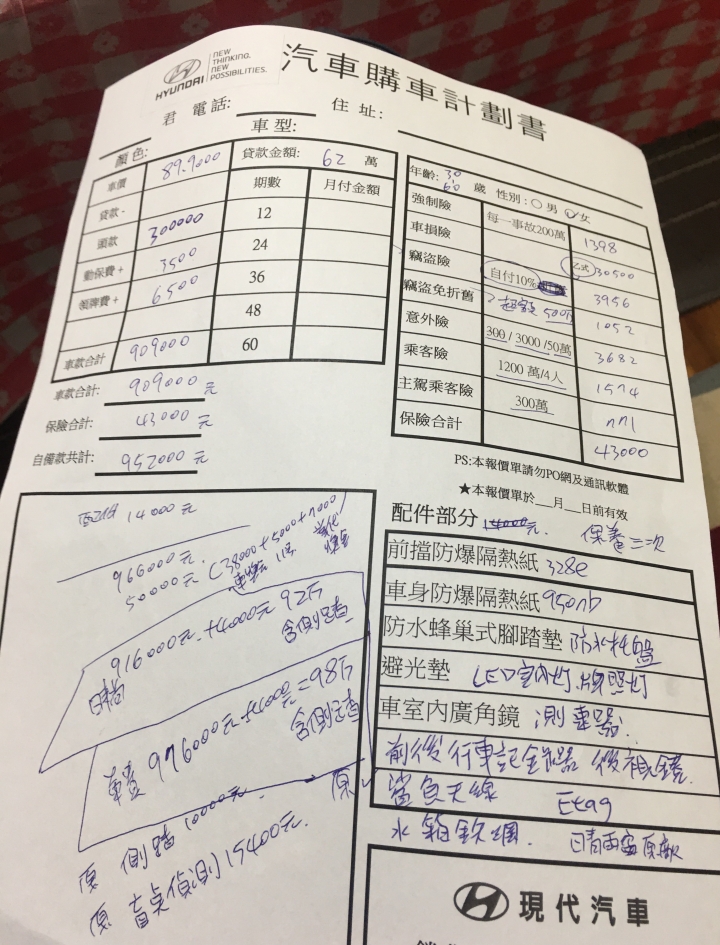 HYUNDAI
NEW THINKING.
NEW POSSIBILITIES.
汽車購車計劃書
君 電話: 住 址:
顏色: 車型:
車價 899000 貸款金額: 62 萬
貸款- 期數 月付金額
頭款 300000 12
動保費+ 3500 24
領牌費+ 6500 36
48
車款合計 909000 60
車款合計: 909000 元
保險合計: 43000 元
自備款共計: 952000 元
年齡: 30 60 歲 性別: 男 女
強制險 每一事故200萬 1398
車損險 乙式 30500
竊盜險 自付10% 3956
竊盜免折舊 超額 500萬 1052
意外險 300/3000/50萬 3682
乘客險 1200 萬/4人 1574
主駕乘客險 300萬
保險合計 43000
PS:本報價單請勿PO網及通訊軟體
★本報價單於__月__日前有效
配件部分 14000元. 保養三次
前擋防爆隔熱紙
車身防爆隔熱紙
防水蜂巢式腳踏墊 防水托盤
避光墊 LED室內灯.牌照灯
車室內廣角鏡 測車器.
前後行車記錄器 後視鏡.
鯊魚天線 Etag
水箱鉄網. 晴雨窗原廠
配件 14000元
966000元
50000元 (38000+5000+7000
916000元+4000元 92万
含側踏
976000元+4000元=98万
含側踏
原 側踏 10000元.
原 盲点偵測15400元.
現代汽車